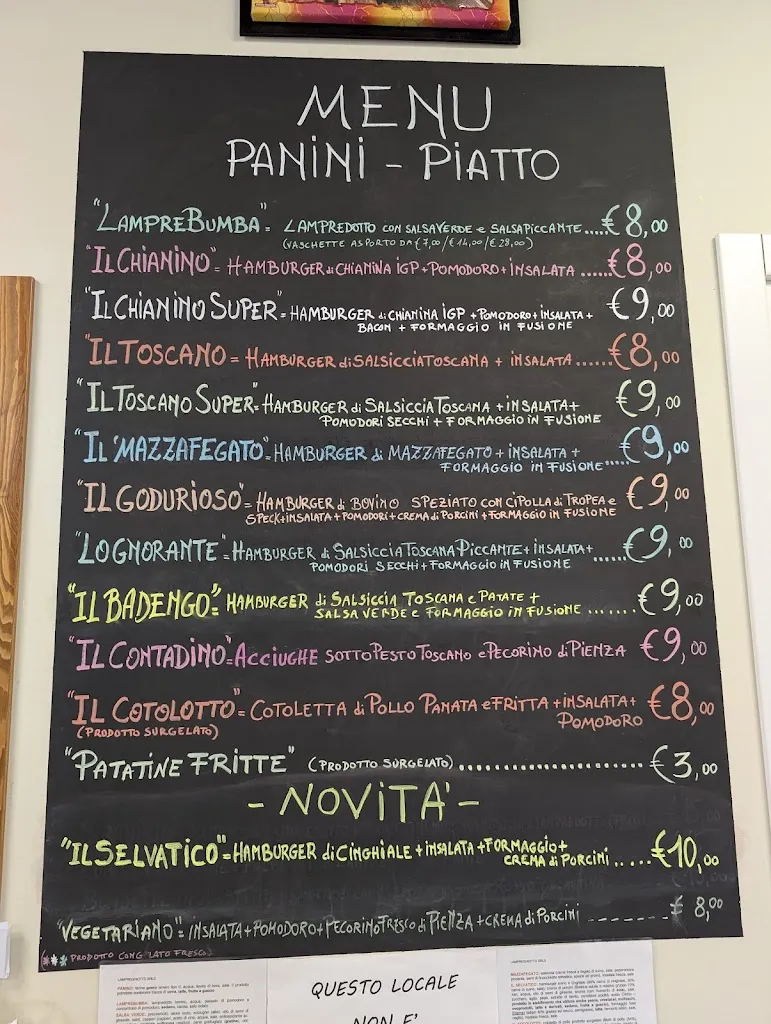 MENU
PANINI - PIATTO
"LAMPREBUMBA" = LAMPREDOTTO CON SALSA VERDE e SALSA PICCANTE.....€8,00
(VASCHETTE ASPORTO DA € 7,00/€ 14,00/€ 28,00)
"IL CHIANINO" = HAMBURGER di CHIANINA IGP + POMODORO + INSALATA .....€8,00
"IL CHIANINO SUPER" = HAMBURGER di CHIANINA IGP + POMODORO + INSALATA + €9,00
BACON + FORMAGGIO IN FUSIONE
"IL TOSCANO = HAMBURGER di SALSICCIA TOSCANA + INSALATA......€8,00
"IL TOSCANO SUPER" = HAMBURGER di SALSICCIA TOSCANA + INSALATA + €9,00
POMODORI SECCHI + FORMAGGIO IN FUSIONE
"IL MAZZAFEGATO" = HAMBURGER di MAZZAFEGATO + INSALATA + €9,00
FORMAGGIO IN FUSIONE.....
"IL GODURIOSO" = HAMBURGER di BOVINO SPEZIATO CON CIPOLLA DI TROPEA e €9,00
SPECK + INSALATA + POMODORI + CREMA di PORCINI + FORMAGGIO IN FUSIONE
"LO GNORANTE" = HAMBURGER di SALSICCIA TOSCANA PICCANTE + INSALATA + .....€9,00
POMODORI SECCHI + FORMAGGIO IN FUSIONE
"IL BADENGO" = HAMBURGER di SALSICCIA TOSCANA e PATATE + €9,00
SALSA VERDE e FORMAGGIO IN FUSIONE ......
"IL CONTADINO" = ACCIUGHE SOTTO PESTO TOSCANO e PECORINO di PIENZA €9,00
"IL COTOLOTTO" = COTOLETTA di POLLO PANATA e FRITTA + INSALATA + €8,00
(PRODOTTO SURGELATO) POMODORO
"PATATINE FRITTE" (PRODOTTO SURGELATO)........................€3,00
- NOVITA' -
"IL SELVATICO" = HAMBURGER di CINGHIALE + INSALATA + FORMAGGIO + €10,00
CREMA di PORCINI.....
"VEGETARIANO" = INSALATA + POMODORO + PECORINO FRESCO di PIENZA + CREMA di PORCINI ------- € 8,00
PRODOTTO CONGELATO FRESCO)
QUESTO LOCALE
NON E'